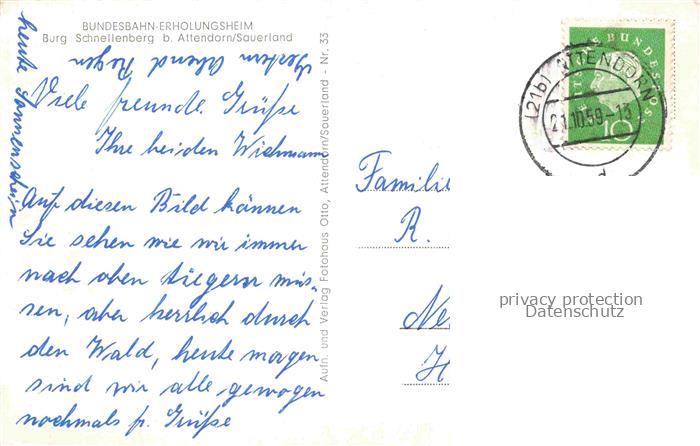 BUNDESBAHN-ERHOLUNGSHEIM
Burg Schnellenberg b. Attendorn/Sauerland
gestern Abend Regen
heute Sonnenschein
Viele freundl. Grüße
Ihre beiden Wichmann
Auf diesen Bild können
Sie sehen wie wir immer
nach oben stiegen müs-
sen, aber herrlich durch
den Wald, heute morgen
sind wir alle gewogen
nochmals fr. Grüße
Aufn. und Verlag Fotohaus Otto, Attendorn/Sauerland - Nr. 33
Familie
R.
Ne
H
DEUTSCHE BUNDESPOST
10
(21b) ATTENDORN
21.10.59-13
d
privacy protection
Datenschutz